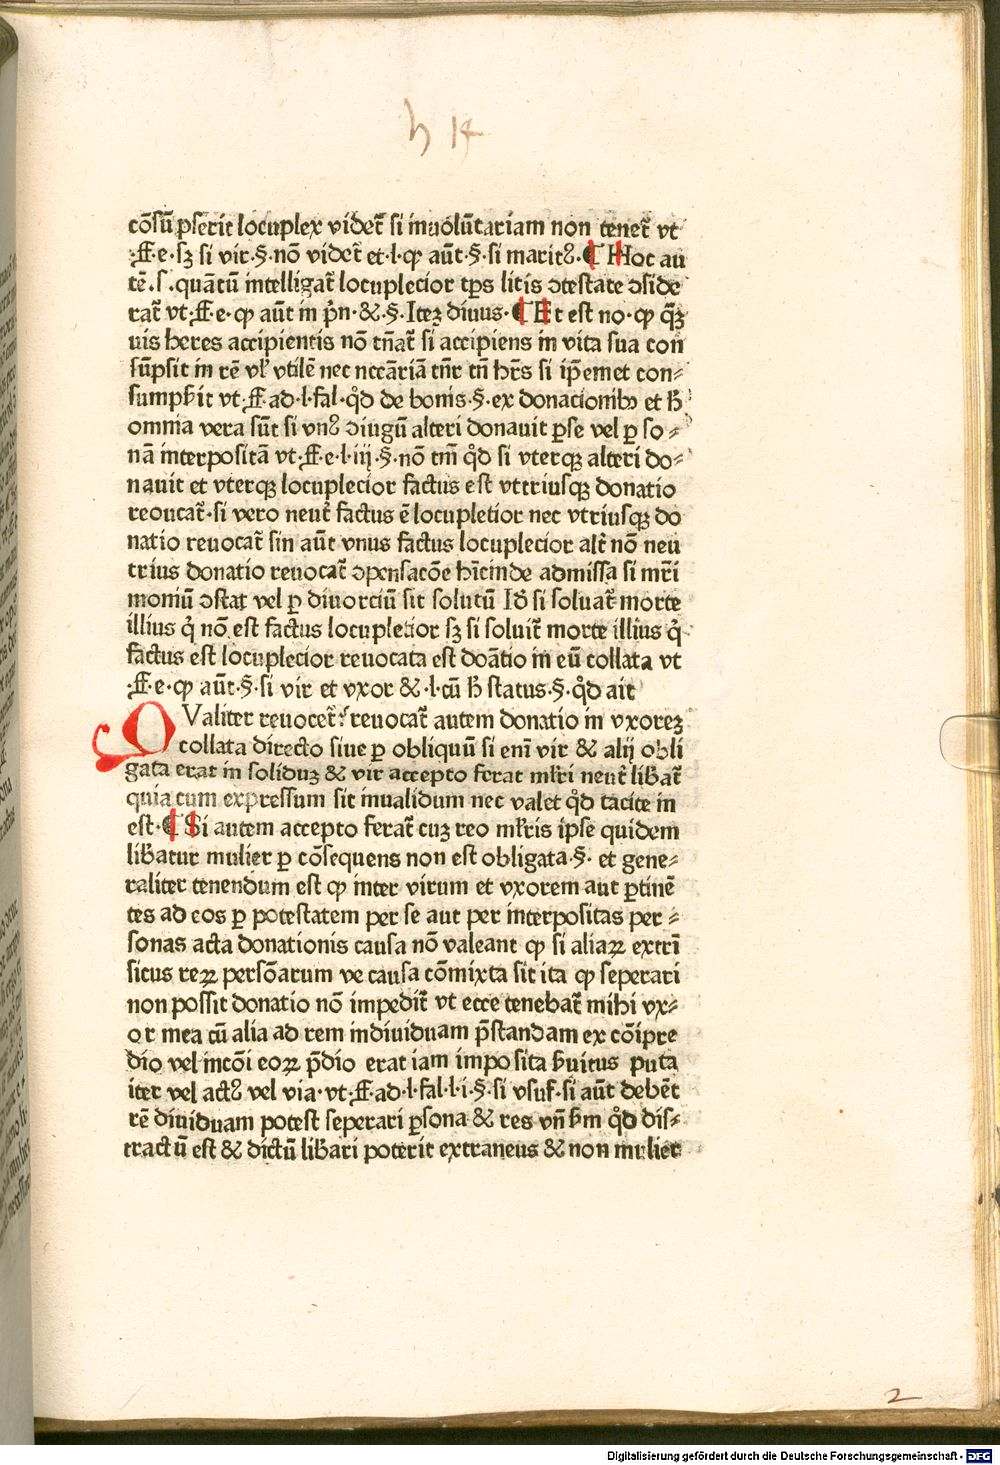 h 14
cōsūpserit locuplex videt̄ si inuolūtariam non tenet̄ vt
·ff·e·sꝫ si vir·§·nō videt̄ et·l·ꝙ aūt·§·si maritꝰ·¶ Hoc au
tē·s·quātū intelligat̄ locuplecior tꝑs litis ↄtestate ↄside
rat̄ vt·ff·e·ꝙ aūt in p̄n·&·§·Iteꝫ diuus·¶ Et est no·ꝙ qͣꝫ
uis heres accipientis nō tn̄at̄ si accipiens in vita sua con
sūpsit in rē vl̓ vtilē nec nccāriā tn̄r tn̄ hr̄s si ip̄emet con⸗
sumpẜit vt·ff·ad·l·fal·qͦd de bonis·§·ex donacionibꝰ et ħ
omnia vera sūt si vnꝰ ↄiugū alteri donauit ꝑse vel ꝑ so⸗
nā interpositā vt·ff·e·l·iij·§·nō tm̄ qͦd si vterqꝫ alteri do⸗
nauit et vterqꝫ locuplecior factus est vttriusqꝫ donatio
reoucat̄·si vero neut̄ factus ē locupletior nec vtriusqꝫ do
natio reuocat̄ sin aūt vnus factus locuplecior alt̄ nō neu
trius donatio reuocat̄ ↄpensacōe hīcinde admissa si mr̄i
moniū ↄstat vel ꝑ diuorciū sit solutū Iđ si soluat̄ morte
illius q̇ nō est factus locupletior sꝫ si soluit̄ morte illius q̇
factus est locuplecior reuocata est doātio in eū collata vt
·ff·e·ꝙ aūt·§·si vir et vxor &·l·cū ħ status·§·qͦd ait
QValiter reuocet̄ʳ reuocat̄ autem donatio in vxoreꝫ
collata directo siue ꝑ obliquū si enī vir & alij obli
gata erat in soliduꝫ & vir accepto ferat mĺri neut̄ liƀat̄
quia cum expressum sit inualidum nec valet qͦd tacite in
est·¶ Si autem accepto ferat̄ cuꝫ reo mĺris ipse quidem
liƀatur mulier ꝑ cōsequens non est obligata·§· et gene⸗
raliter tenendum est ꝙ inter virum et vxorem aut ꝑtinē
tes ad eos ꝑ potestatem per se aut per interpositas per⸗
sonas acta donationis causa nō valeant ꝙ si aliaꝝ extrī
sicus reꝝ persōarum ve causa cōmixta sit ita ꝙ seperari
non possit donatio nō impedit̄ vt ecce tenebat̄ mihi vx⸗
or mea cū alia ad rem indiuiduam p̄standam ex cōi pre
dio vel incōi eoꝝ p̄dio erat iam imposita ẜuitus puta
iter vel actꝰ vel via·vt·ff·ad·l·fal·l·i·§·si vsuf·si aūt debēt
rē diuiduam potest seperari ꝑsona & res vn̄ ẜm qͦd dis⸗
tractū est & dictū liƀari poterit extraneus & non mulier
2
Digitalisierung gefördert durch die Deutsche Forschungsgemeinschaft · DFG